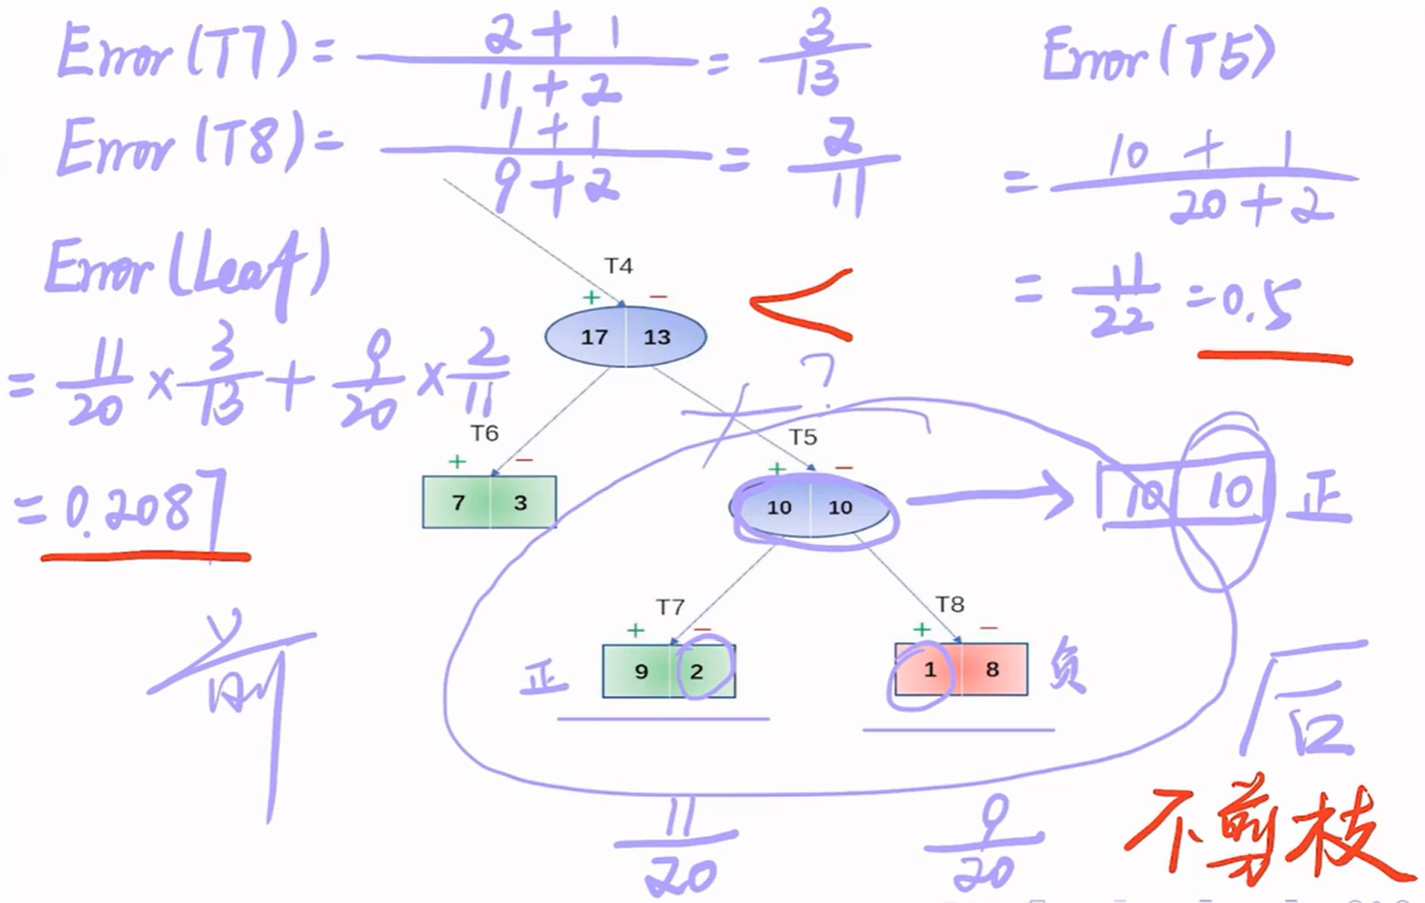 Error(T7) = 2+1 / 11+2 = 3/13
Error(T8) = 1+1 / 9+2 = 2/11
Error(Leaf)
= 11/20 × 3/13 + 9/20 × 2/11
= 0.2087
前
Error(T5)
= 10 + 1 / 20+2
= 11/22 = 0.5
T4
+ −
17 13
<
?
T6
+ −
7 3
T5
+ −
10 10
10 10 正
T7
+ −
正 9 2
T8
+ −
1 8 负
11/20
9/20
后
不剪枝